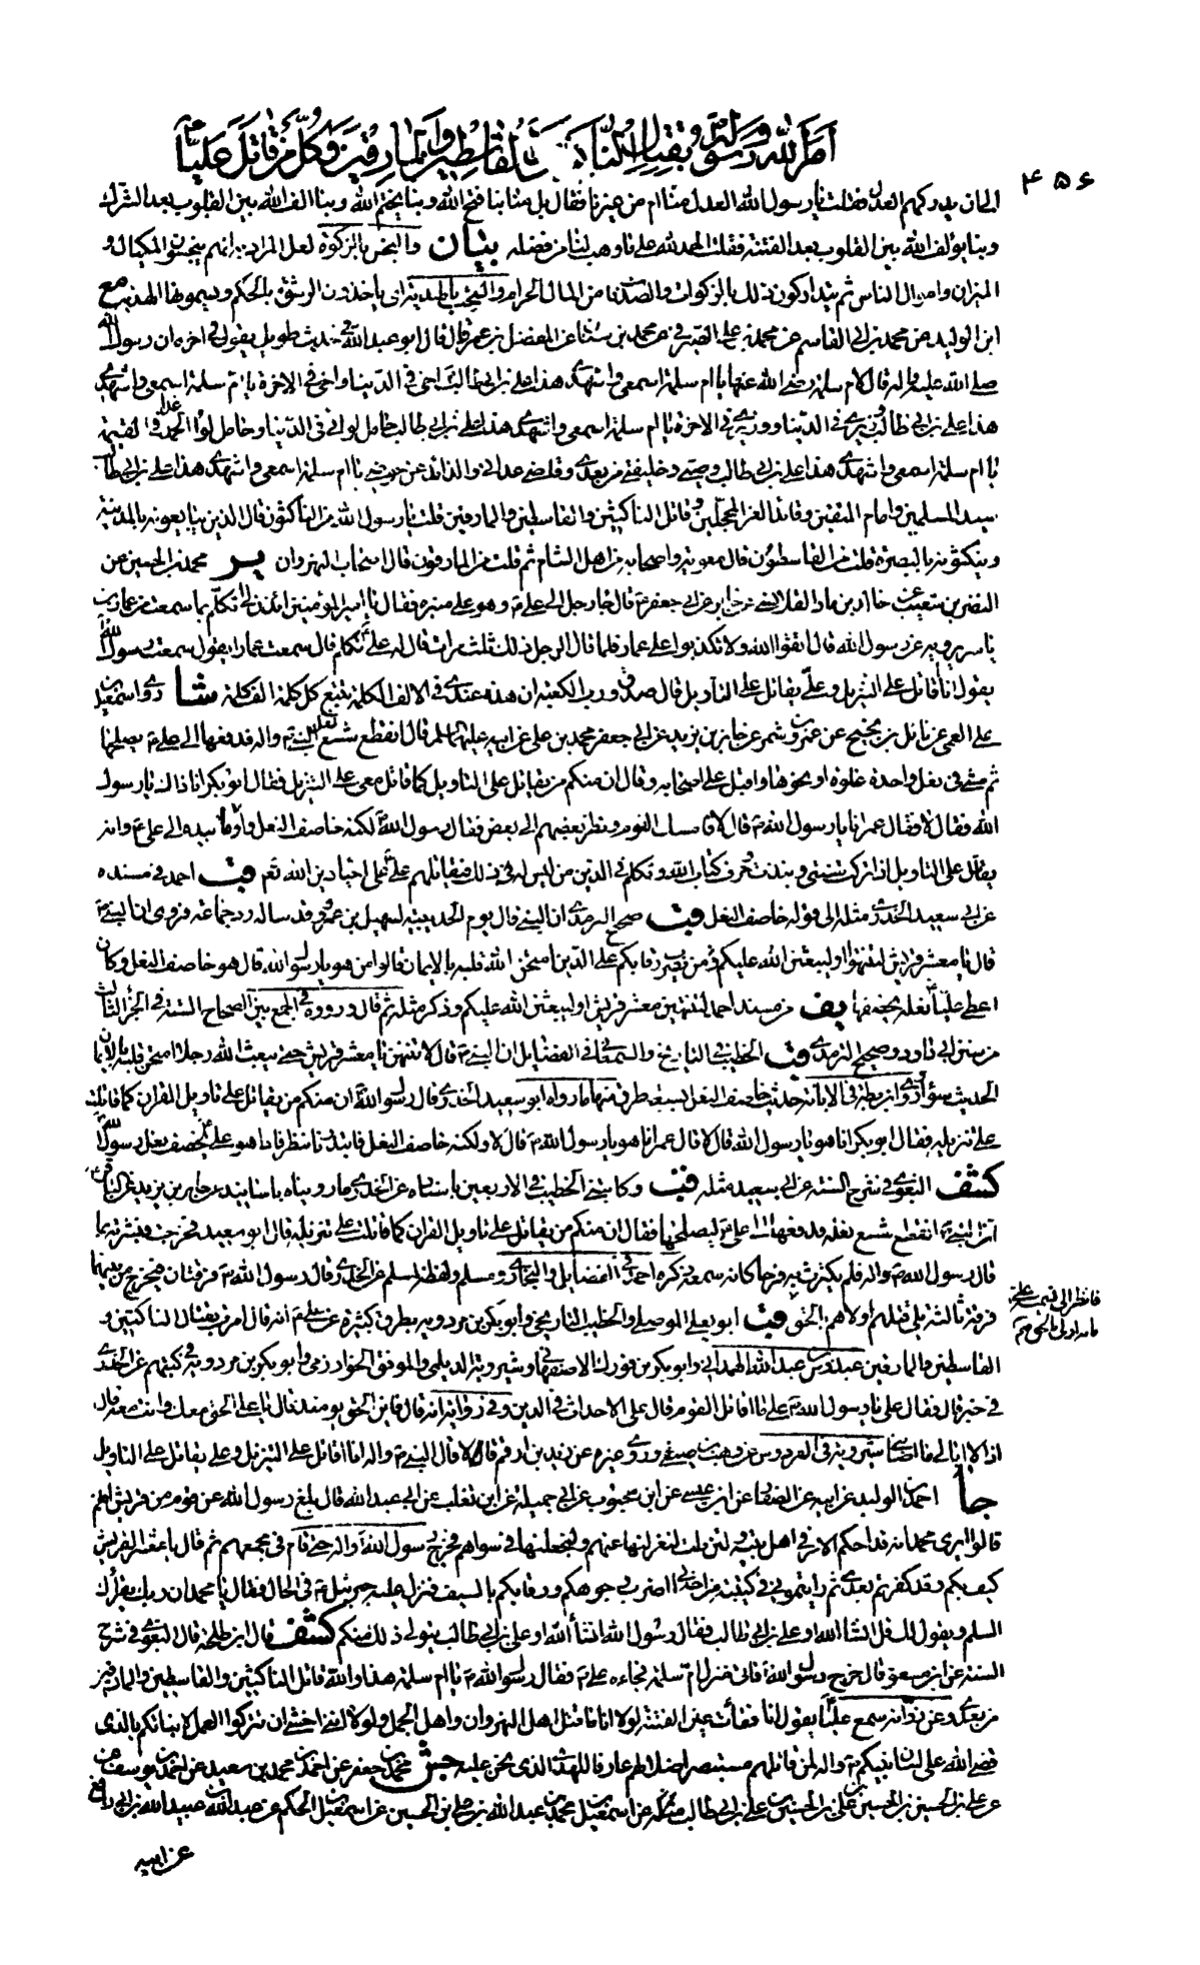 امر الله ورسوله بقتال الناكثين والقاسطين والمارقين وكل من قاتل عليا
٤٥٦
الى ان يدركهم العدل فقلت يا رسول الله العدل منا ام من غيرنا فقال بل منا بنا فتح الله وبنا يختم الله وبنا الف الله بين القلوب بعد الشرك
وبنا يؤلف الله بين القلوب بعد الفتنة فقلت الحمد لله على ما وهب لنا من فضله بيان والبخس بالزكوة لعل المراد به انهم يبخسون المكيال و
الميزان واموال الناس ثم يتداركون ذلك بالزكوات والصدقات من المال الحرام والسحت بالهدية اى ياخذون الرشوة بالحكم ويسمونها الهدية مع
ابن الوليد عن محمد بن ابى القاسم عن محمد بن على الصيرفى عن محمد بن سنان عن المفضل بن عمر قال قال ابو عبد الله فى حديث طويل يقول فى اخره ان رسول الله
صلى الله عليه واله قال لام سلمة رضى الله عنها يا ام سلمة اسمعى واشهدى هذا على بن ابى طالب اخى فى الدنيا واخى فى الاخرة يا ام سلمة اسمعى واشهدى
هذا على بن ابى طالب وزيرى فى الدنيا ووزيرى فى الاخرة يا ام سلمة اسمعى واشهدى هذا على بن ابى طالب حامل لوائى فى الدنيا وحامل لواء الحمد غدا فى القيمة
يا ام سلمة اسمعى واشهدى هذا على بن ابى طالب وصيى وخليفتى من بعدى وقاضى عداتى والذائد عن حوضى يا ام سلمة اسمعى واشهدى هذا على بن ابى طالب
سيد المسلمين وامام المتقين وقائد الغر المحجلين وقاتل الناكثين والقاسطين والمارقين قلت يا رسول الله من الناكثون قال الذين يبايعونه بالمدينة
وينكثونه بالبصرة قلت من القاسطون قال معوية واصحابه من اهل الشام ثم قلت من المارقون قال اصحاب النهروان ير محمد بن الحسين عن
النضر بن شعيب عن خالد بن ماد القلانسى عن جابر عن ابى جعفر ع قال جاء رجل الى على ع وهو على منبره فقال يا امير المؤمنين ائذن لى اتكلم بما سمعت من عمار بن
ياسر يرويه عن رسول الله قال اتقوا الله ولا تكذبوا على عمار فلما قال الرجل ذلك ثلث مرات قال له على تكلم قال سمعت عمارا يقول سمعت رسول الله
يقول انا اقاتل على التنزيل وعلى يقاتل على التاويل قال صدق ورب الكعبة ان هذه عندى فى الالف الكلمة تتبع كل كلمة الف كلمة شا روى اسمعيل بن
على العمى عن نائل بن نجيح عن عمرو بن شمر عن جابر بن يزيد عن ابى جعفر محمد بن على عن ابيه عليهما السلم قال انقطع شسع نعل النبى ص واله فدفعها الى على ع يصلحها
ثم مشى فى نعل واحدة غلوة او نحوها واقبل على اصحابه وقال ان منكم من يقاتل على التاويل كما قاتل معى على التنزيل فقال ابو بكر انا ذاك يا رسول
الله فقال لا فقال عمر انا يا رسول الله ص قال لا فامسك القوم ونظر بعضهم الى بعض فقال رسول الله لكنه خاصف النعل واوما بيده الى على ع وانه
يقاتل على التاويل اذا تركت سنتى ونبذت وحرف كتاب الله وتكلم فى الدين من ليس له ذلك فيقاتلهم على على احياء دين الله تعم قب احمد فى مسنده
عن ابى سعيد الخدرى مثله الى قوله خاصف النعل قب صحيح الترمذى ان النبى قال يوم الحديبية لسهيل بن عمرو وقد ساله رد جماعة فروى ان النبى ص
قال يا معشر قريش لتنتهوا او ليبعثن الله عليكم من يضرب رقابكم على الدين امتحن الله قلبه بالايمان قالوا من هو يا رسول الله قال هو خاصف النعل وكان
اعطى عليا نعله يخصفها يف من مسند احمد لتنتهين معشر قريش او ليبعثن الله عليكم وذكر مثله ثم قال ورووه فى الجمع بين الصحاح الستة فى الجزء الثالث
من سنن ابى داود وصحيح الترمذى قب الخطيب فى التاريخ والسمعانى فى الفضايل ان النبى ص قال لا تنتهون يا معشر قريش حتى يبعث الله رجلا امتحن قلبه بالايمان
الحديث سواء روى ابن بطة فى الابانة حديث خاصف النعل بسبعة طرق منها ما رواه ابو سعيد الخدرى قال رسول الله ان منكم من يقاتل على تاويل القران كما قاتلت
على تنزيله فقال ابو بكر انا هو يا رسول الله قال لا قال عمر انا هو يا رسول الله ص قال لا ولكنه خاصف النعل فابتدرنا ننظر فاذا هو على يخصف نعل رسول الله
كشف البغوى فى شرح السنة عن ابى سعيد مثله قب وكاتبنى الخطيب فى الاربعين باسناده عن الخدرى ما رويناه باسانيد عن جابر بن يزيد عن الباقر ع
ان النبى ص انقطع شسع نعله فدفعها الى على ع ليصلحها فقال ان منكم من يقاتل على تاويل القران كما قاتلت على تنزيله قال ابو سعيد فخرجت فبشرته بما
قال رسول الله ص واله فلم يكترث به فرحا كانه سمعه ذكره احمد فى الفضايل والبخارى ومسلم ولفظه لمسلم عن الخدرى قال رسول الله ص فرقتان فيخرج من بينهما
فرقة ثالثة يلى قتلهم اولاهم بالحق قب ابو يعلى الموصلى والخطيب التاريخى وابو بكر بن مردويه بطرق كثيرة عن على ع انه قال امرت بقتال الناكثين و
القاسطين والمارقين عبدوس بن عبد الله الهمدانى وابو بكر بن فورك الاصفهانى وشيرويه الديلمى والموفق الخوارزمى وابو بكر بن مردويه فى كتبهم عن الخدرى
فى خبر قال فقال على يا رسول الله ص على ما اقاتل القوم قال على الاحداث فى الدين وفى رواية انه قال فاين الحق يومئذ قال يا على الحق معك وانت معه قال
اذا لا ابالى ما اصابنى شيرويه فى الفردوس عن وهب بن صيفى وروى غيره عن زيد بن ارقم قالا قال النبى ص واله انا اقاتل على التنزيل وعلى يقاتل على التاويل
جا احمد بن الوليد عن ابيه عن الصفار عن ابن عيسى عن ابن محبوب عن ابى جميلة عن ابن تغلب عن ابى عبد الله قال بلغ رسول الله عن قوم من قريش انهم
قالوا ايرى محمد انه قد احكم الامر فى اهل بيته ولئن مات لنعزلنها عنهم ولنجعلنها فى سواهم فخرج رسول الله واله حتى قام فى مجمعهم ثم قال يا معشر قريش
كيف بكم وقد كفرتم بعدى ثم رايتمونى فى كتيبة من اصحابى اضرب وجوهكم ورقابكم بالسيف فنزل عليه جبرئيل ع فى الحال فقال يا محمد ان ربك يقرئك
السلم ويقول لك قل انشاء الله او على بن ابى طالب فقال رسول الله انشاء الله او على بن ابى طالب يتولى ذلك منكم كشف قال ابن طلحة قال البغوى فى شرح
السنة عن ابن مسعود قال خرج رسول الله فاتى منزل ام سلمة فجاءه على ع فقال رسول الله ص يا ام سلمة هذا والله قاتل الناكثين والقاسطين والمارقين
من بعدى عن زر انه سمع عليا يقول انا فقأت عين الفتنة لولا انا ما قتل اهل النهروان واهل الجمل ولولا اننى اخشى ان تتركوا العمل لانبأتكم بالذى
قضى الله على لسان نبيكم ص واله لمن قاتلهم مستبصرا ضلالهم عارفا للهدى الذى نحن عليه جش محمد بن جعفر عن احمد بن محمد بن سعيد عن احمد بن يوسف
عن على بن الحسين بن الحسين بن على بن الحسين بن على بن ابى طالب عن اسمعيل بن محمد بن عبد الله بن على بن الحسين عن اسمعيل بن الحكم عن عبد الله بن عبيد الله بن ابى رافع
عن ابيه